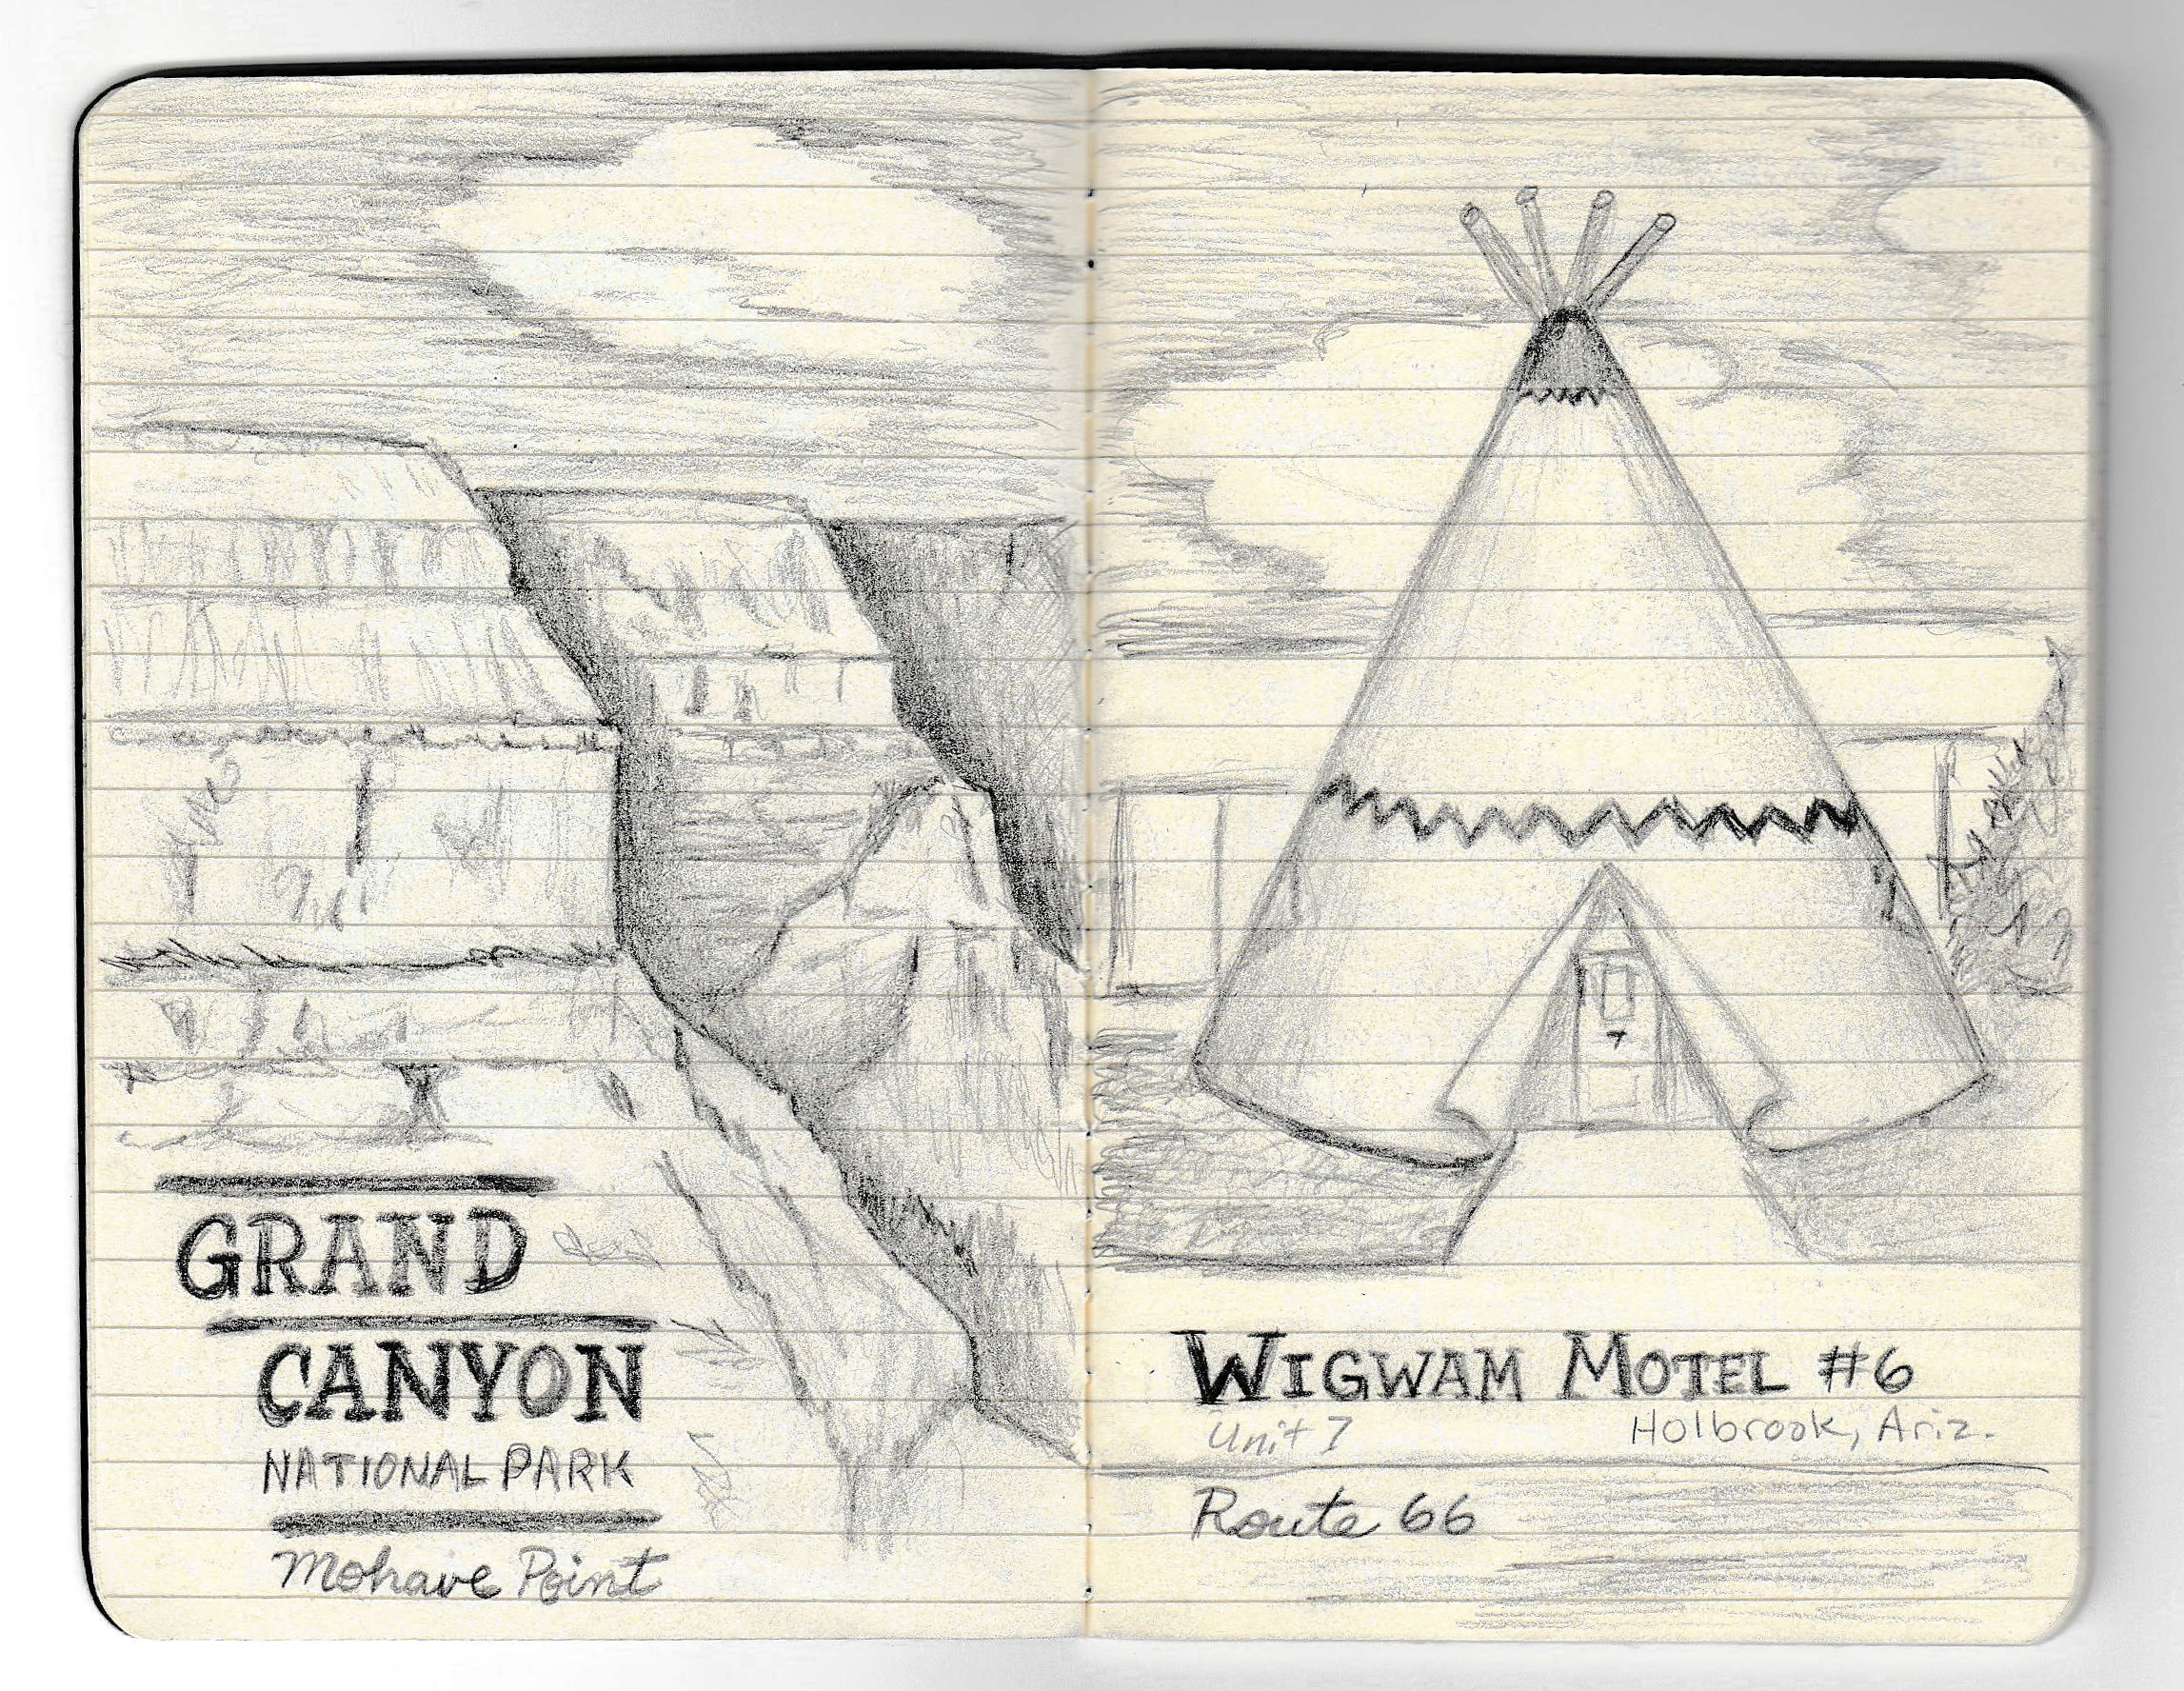 GRAND
CANYON
NATIONAL PARK
Mohave Point
WIGWAM MOTEL #6
Unit 7 Holbrook, Ariz.
Route 66